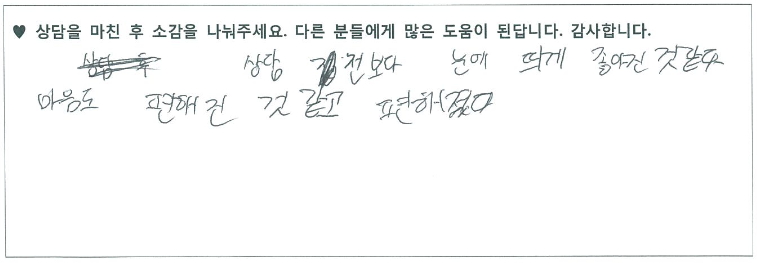 ♥ 상담을 마친 후 소감을 나눠주세요. 다른 분들에게 많은 도움이 된답니다. 감사합니다.
상담 후 상담 전보다 눈에 띄게 좋아진 것 같다
마음도 편해진 것 같고 편해졌다